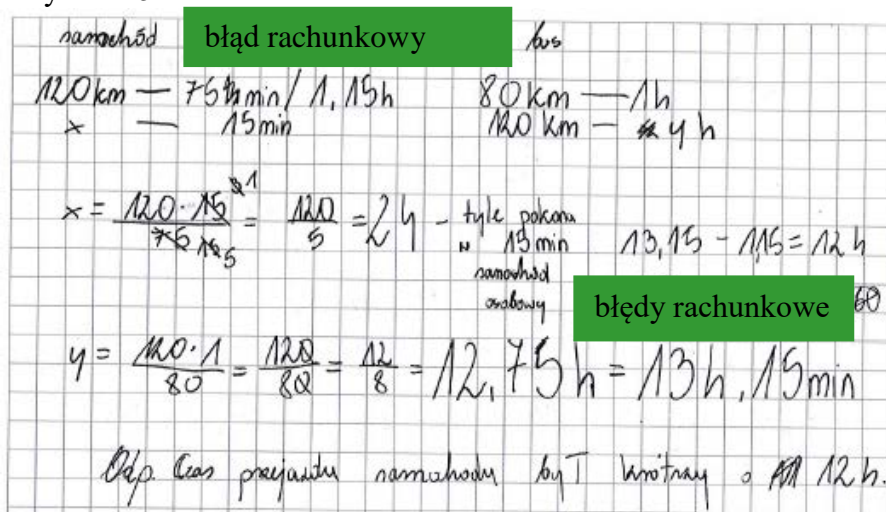 samochód błąd rachunkowy bus
120 km — 75 min / 1,15h 80 km — 1h
x — 15 min 120 km — y h
x = 120·15 / 75 5 = 120/5 = 24 - tyle pokona
w 15 min 13,15 - 1,15 = 12 h
samochód
osobowy błędy rachunkowe 60
y = 120·1/80 = 120/80 = 12/8 = 12,75 h = 13 h, 15 min
Odp. Czas przejazdu samochodu był krótszy o 12 h.